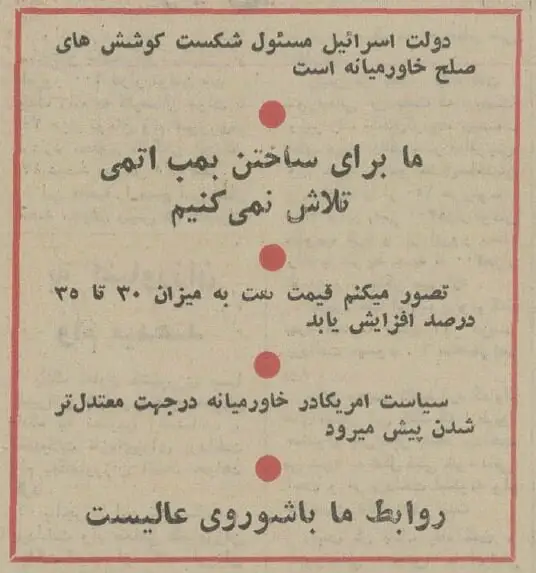 دولت اسرائیل مسئول شکست کوشش های
صلح خاورمیانه است
ما برای ساختن بمب اتمی
تلاش نمی‌کنیم
تصور میکنم قیمت نفت به میزان ۳۰ تا ۳۵
درصد افزایش یابد
سیاست امریکادر خاورمیانه درجهت معتدل‌تر
شدن پیش میرود
روابط ما باشوروی عالیست